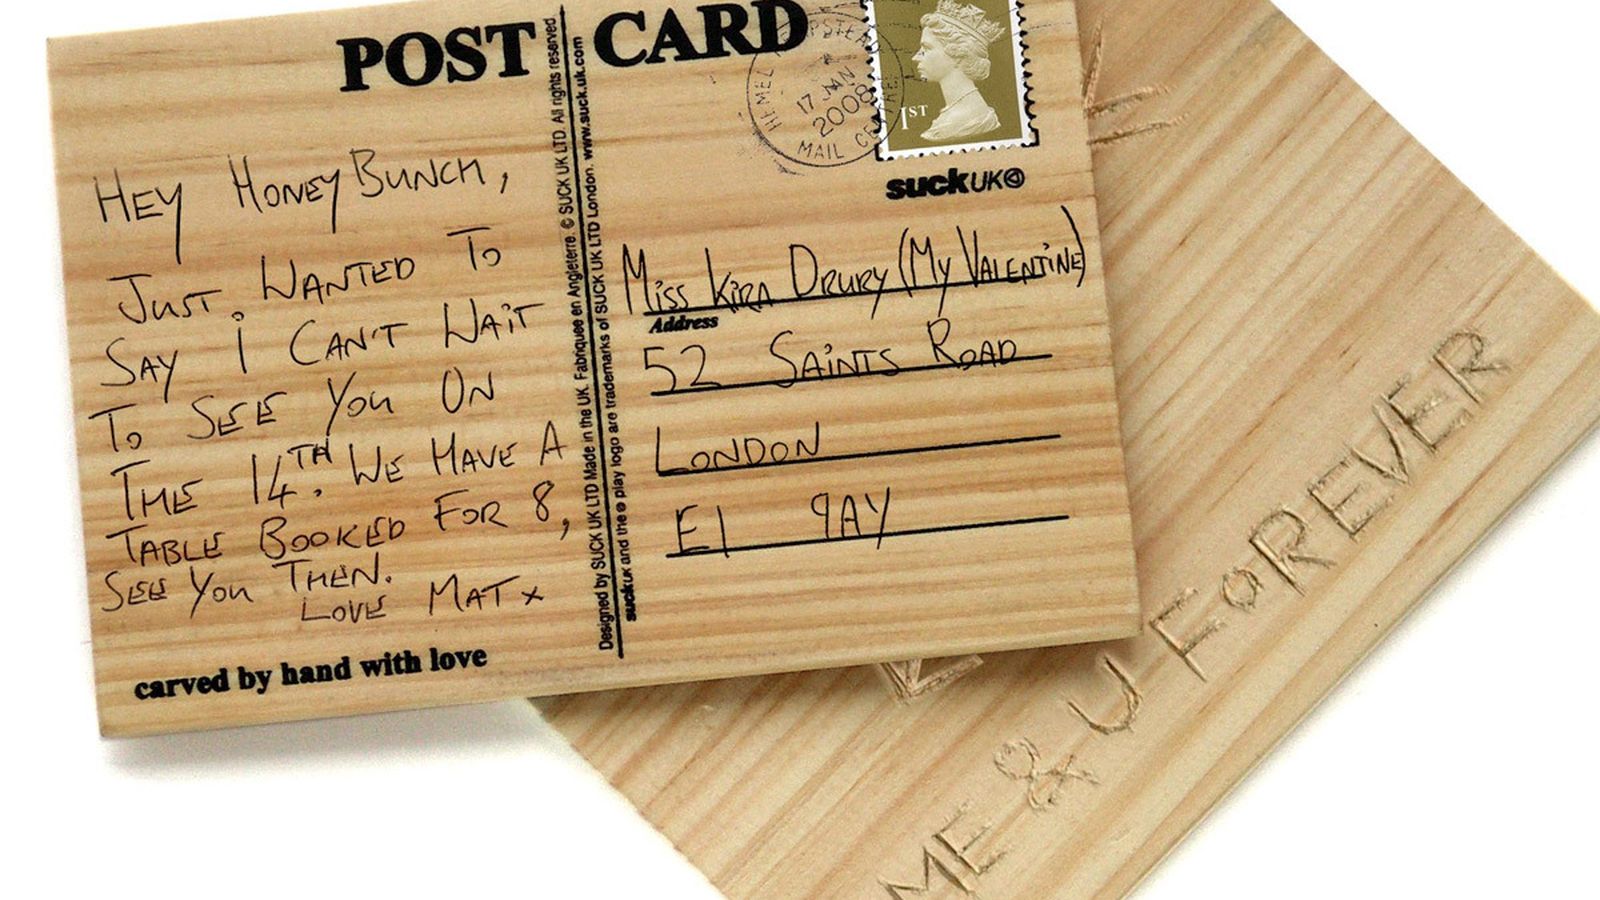 POST CARD
HEY HONEYBUNCH,
JUST WANTED TO
SAY I CAN'T WAIT
TO SEE YOU ON
THE 14TH. WE HAVE A
TABLE BOOKED FOR 8,
SEE YOU THEN.
LOVE MAT x
carved by hand with love
Designed by SUCK UK LTD Made in the UK. Fabriquee en Angleterre. © SUCK UK LTD. All rights reserved
suckUK and the play logo are trademarks of SUCK UK LTD London. www.suck.uk.com
HEMEL HEMPSTEAD
17 JAN
2008
MAIL CENTRE
1ST
suckUK
MISS KIRA DRURY (MY VALENTINE)
Address
52 SAINTS ROAD
LONDON
E1 9AY
ME & U FOREVER